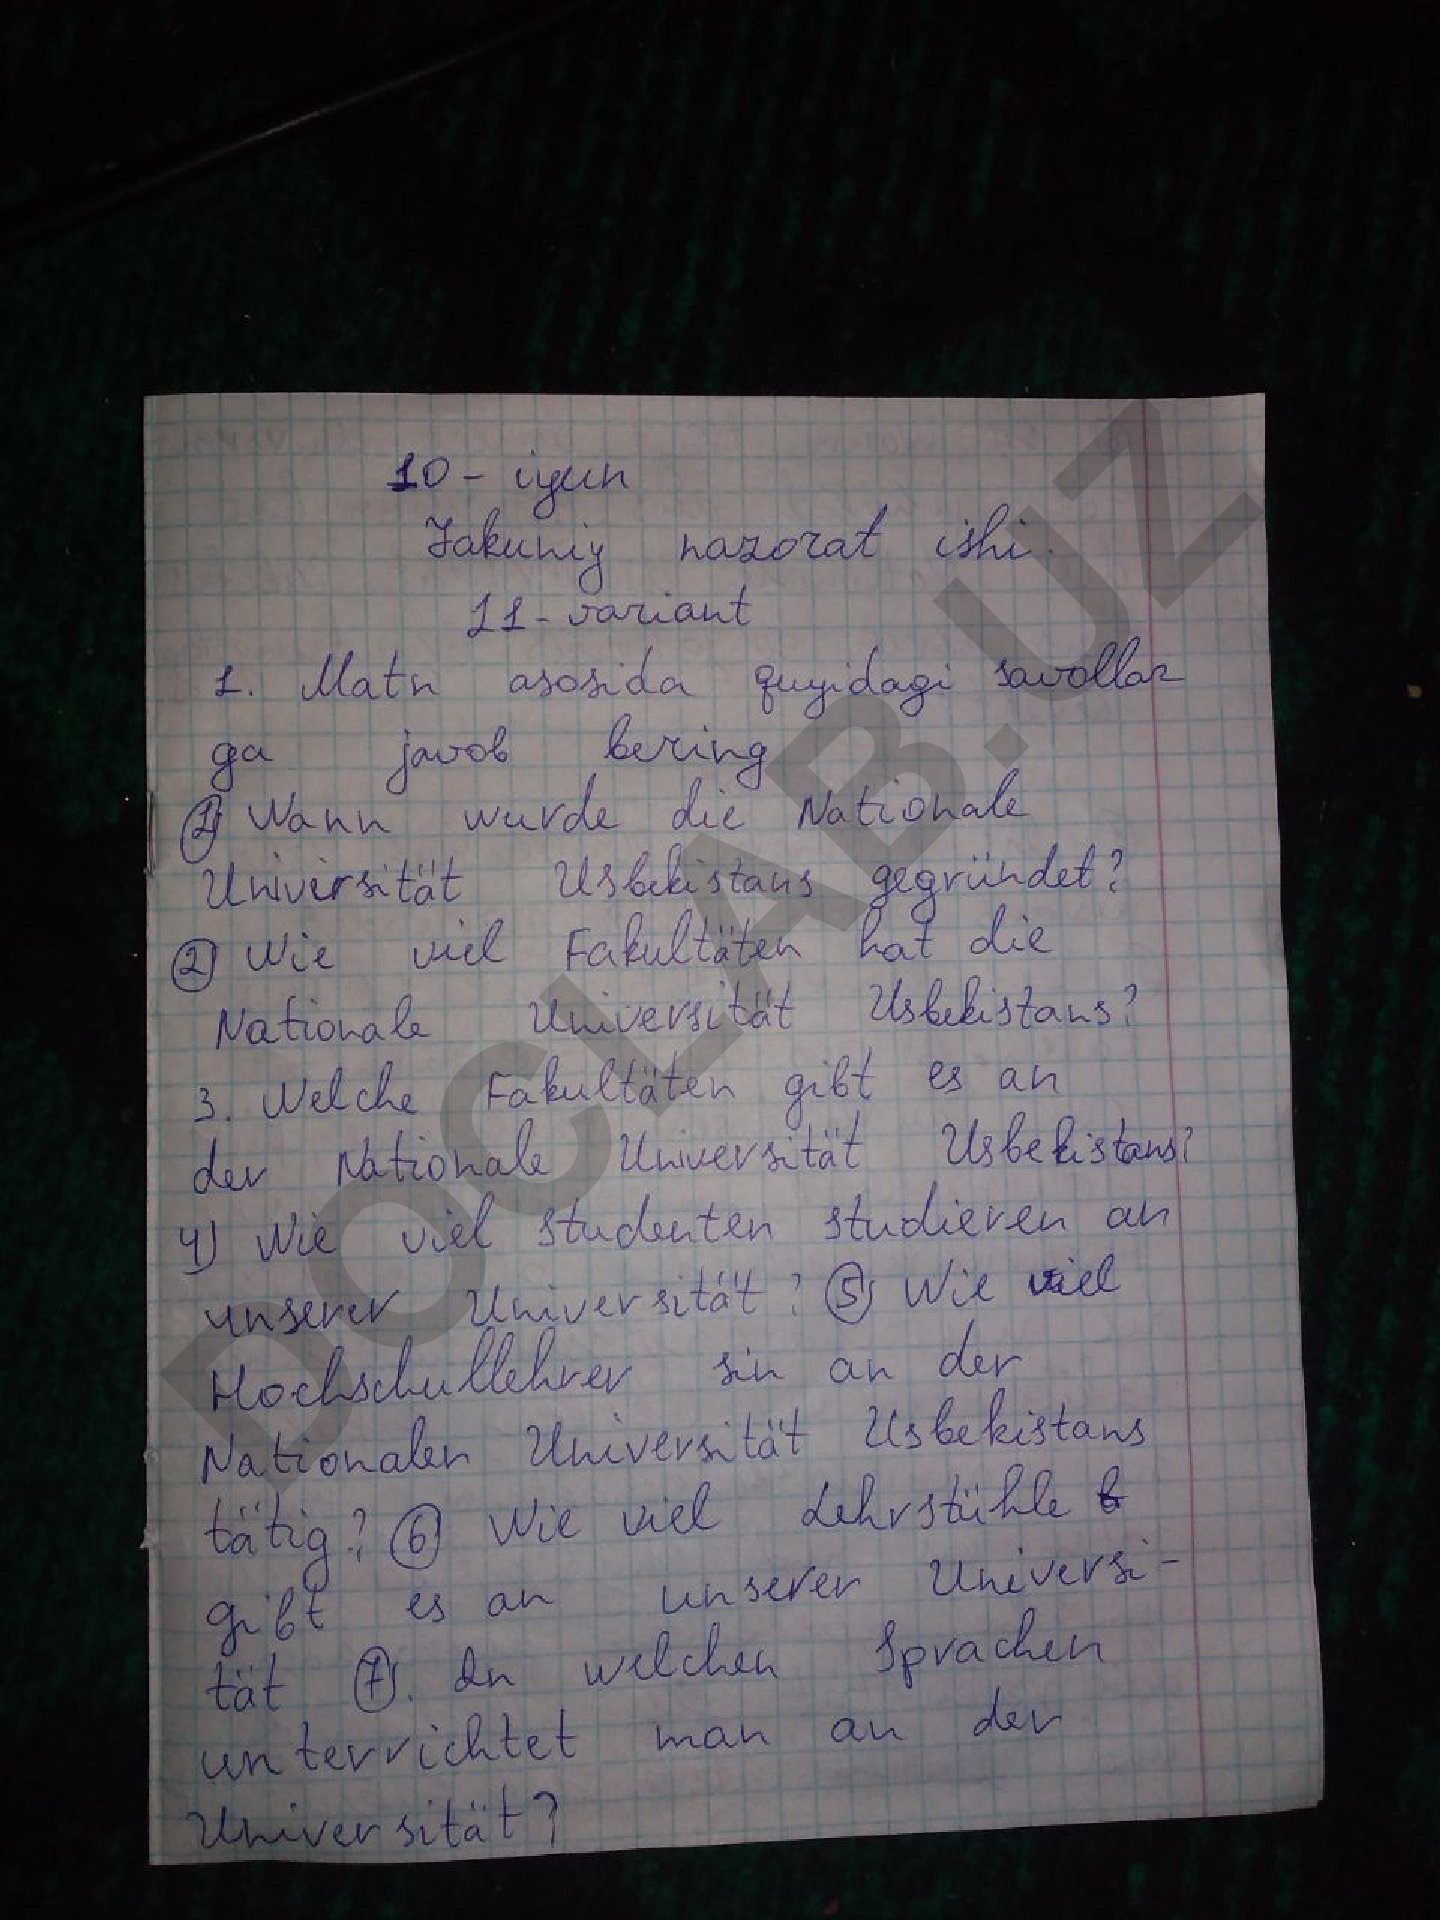 10 - iyun
Yakuniy nazorat ishi.
11 - variant
1. Matn asosida quyidagi savollar
ga javob bering
1) Wann wurde die Nationale
Universität Usbekistans gegründet?
2) Wie viel Fakultäten hat die
Nationale Universität Usbekistans?
3. Welche Fakultäten gibt es an
der Nationale Universität Usbekistans?
4) Wie viel studenten studieren an
unserer Universität? 5) Wie viel
Hochschullehrer sin an der
Nationalen Universität Usbekistans
tätig? 6) Wie viel Lehrstühle
gibt es an unserer Universi-
tät 7). In welchen Sprachen
unterrichtet man an der
Universität?
DOCLAB.UZ